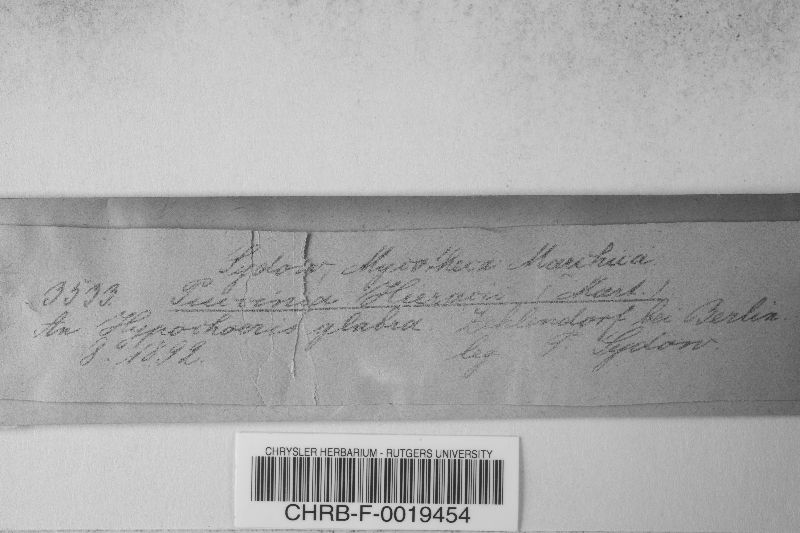 Sydow, Mycotheca Marchica
3533. Puccinia Hieracii (Mart.)
An Hypochoeris glabra. Zehlendorf bei Berlin.
8. 1892. leg. P. Sydow
CHRYSLER HERBARIUM - RUTGERS UNIVERSITY
CHRB-F-0019454